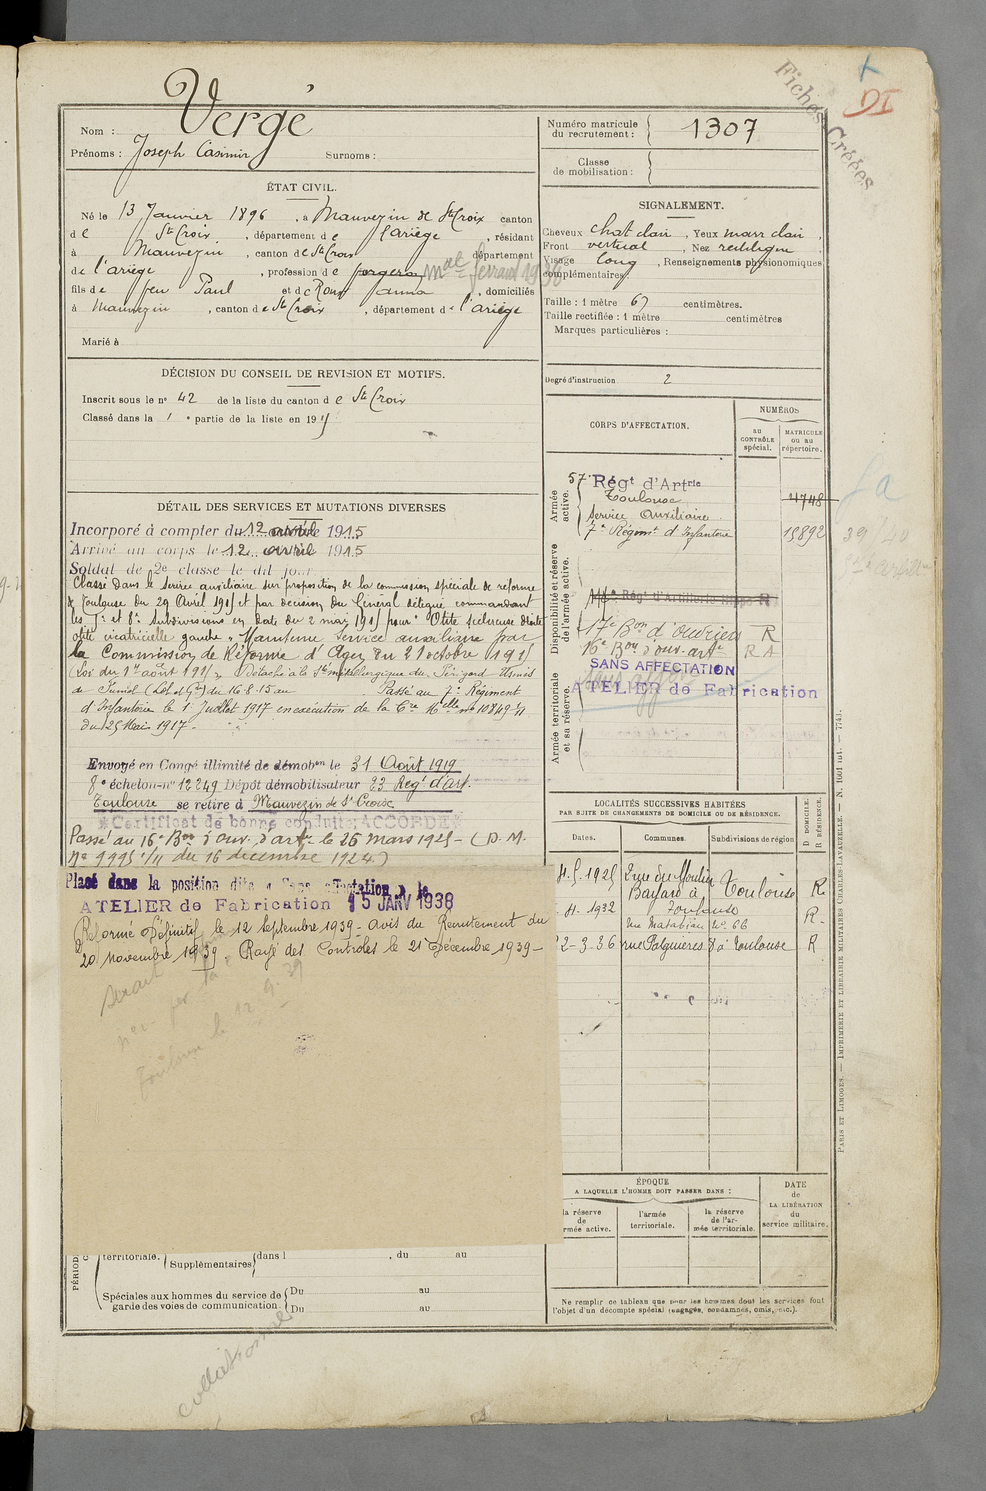 Fiches Créées
DI
Vergé
Nom :
Prénoms : Joseph Casimir Surnoms :
Numéro matricule
du recrutement : 1307
Classe
de mobilisation :
ÉTAT CIVIL.
Né le 13 Janvier 1896, à Mauvezin de Ste Croix canton
de Ste Croix, département de l'ariège, résidant
à Mauvezin, canton de Ste Croix département
de l'ariège, profession de forgeron
fils de feu Paul et de Roux Janna, domiciliés
à Mauvezin, canton de Ste Croix, département de l'ariège
Marié à
SIGNALEMENT.
Cheveux chat clair, Yeux marr clair,
Front vertical, Nez rectiligne
Visage long, Renseignements physionomiques
complémentaires
Taille : 1 mètre 67 centimètres.
Taille rectifiée : 1 mètre centimètres
Marques particulières :
Degré d'instruction 2
DÉCISION DU CONSEIL DE REVISION ET MOTIFS.
Inscrit sous le n° 42 de la liste du canton de Ste Croix
Classé dans la 1e partie de la liste en 1915
DÉTAIL DES SERVICES ET MUTATIONS DIVERSES
Incorporé à compter du 12 avril 1915
Arrivé au corps le 12 avril 1915
Soldat de 2e classe le dit jour
Classé dans le service auxiliaire sur proposition de la commission spéciale de réforme
de Toulouse du 29 Avril 1915 et par décision du Général délégué commandant
les 7e et 8e Subdivisions en date du 2 mai 1915 pour "Otite scléreuse droite
otite cicatricielle gauche" Maintenu Service auxiliaire par
la Commission de Réforme d'Agen du 21 octobre 1915
(Loi du 17 août 1915) Détaché à la Sté métallurgique du Périgord Usines
de Fumel (Lot et Gne) du 16-8-15 au Passé au 7e Régiment
d'Infanterie le 1er Juillet 1917 en exécution de la Cre Melle n° 10849
du 25 Mai 1917.
Envoyé en Congé illimité de démobon le 31 Août 1919
8e échelon n° 12249 Dépôt démobilisateur 23 Régt d'art.
Toulouse se retire à Mauvezin de Ste Croix
*Certificat de bonne conduite: ACCORDÉ*
Passé au 16e Bon d'ouv. d'artie le 26 mars 1925 - (D. M.
n° 9995 1/11 du 16 décembre 1924)
Placé dans la position dite « Sans affectation », le
ATELIER de Fabrication 15 JANV 1938
Réformé Définitif le 12 Septembre 1939 - avis du Recrutement du
20 novembre 1939. Rayé des Contrôles le 21 Décembre 1939 -
Toulouse le 12.9.39
CORPS D'AFFECTATION.
NUMÉROS
au
CONTRÔLE
spécial.
MATRICULE
ou au
répertoire.
Armée
active.
57e Régt d'Artrie
Toulouse 4748
Service Auxiliaire
7e Régimt d'Infanterie 15892
Disponibilité et réserve
de l'armée active.
Régt d'Artillerie R
17e Bon d'Ouvriers R
16e Bon d'ouv. artie R A
SANS AFFECTATION
ATELIER de Fabrication
Armée territoriale
et sa réserve.
39/40
LOCALITÉS SUCCESSIVES HABITÉES
PAR SUITE DE CHANGEMENTS DE DOMICILE OU DE RÉSIDENCE.
D DOMICILE.
R RÉSIDENCE.
Dates. Communes. Subdivisions de région
4.5.1925 2 rue du Moulin
Bayard à Toulouse R
4.1932 Toulouse R
rue Matabiau n° 66
2-3-36 rue Palguieres 8 à Toulouse R
ÉPOQUE
A LAQUELLE L'HOMME DOIT PASSER DANS :
la réserve
de
l'armée active.
l'armée
territoriale.
la réserve
de l'ar-
mée territoriale.
DATE
de
LA LIBÉRATION
du
service militaire.
territoriale. Supplémentaires dans l , du au
Spéciales aux hommes du service de
garde des voies de communication.
Du au
Du au
Ne remplir ce tableau que pour les hommes dont les services font
l'objet d'un décompte spécial (engagés, condamnés, omis, etc.).
PARIS ET LIMOGES. — IMPRIMERIE ET LIBRAIRIE MILITAIRES CHARLES-LAVAUZELLE. — N. 1001 int. — 7743.
collationné